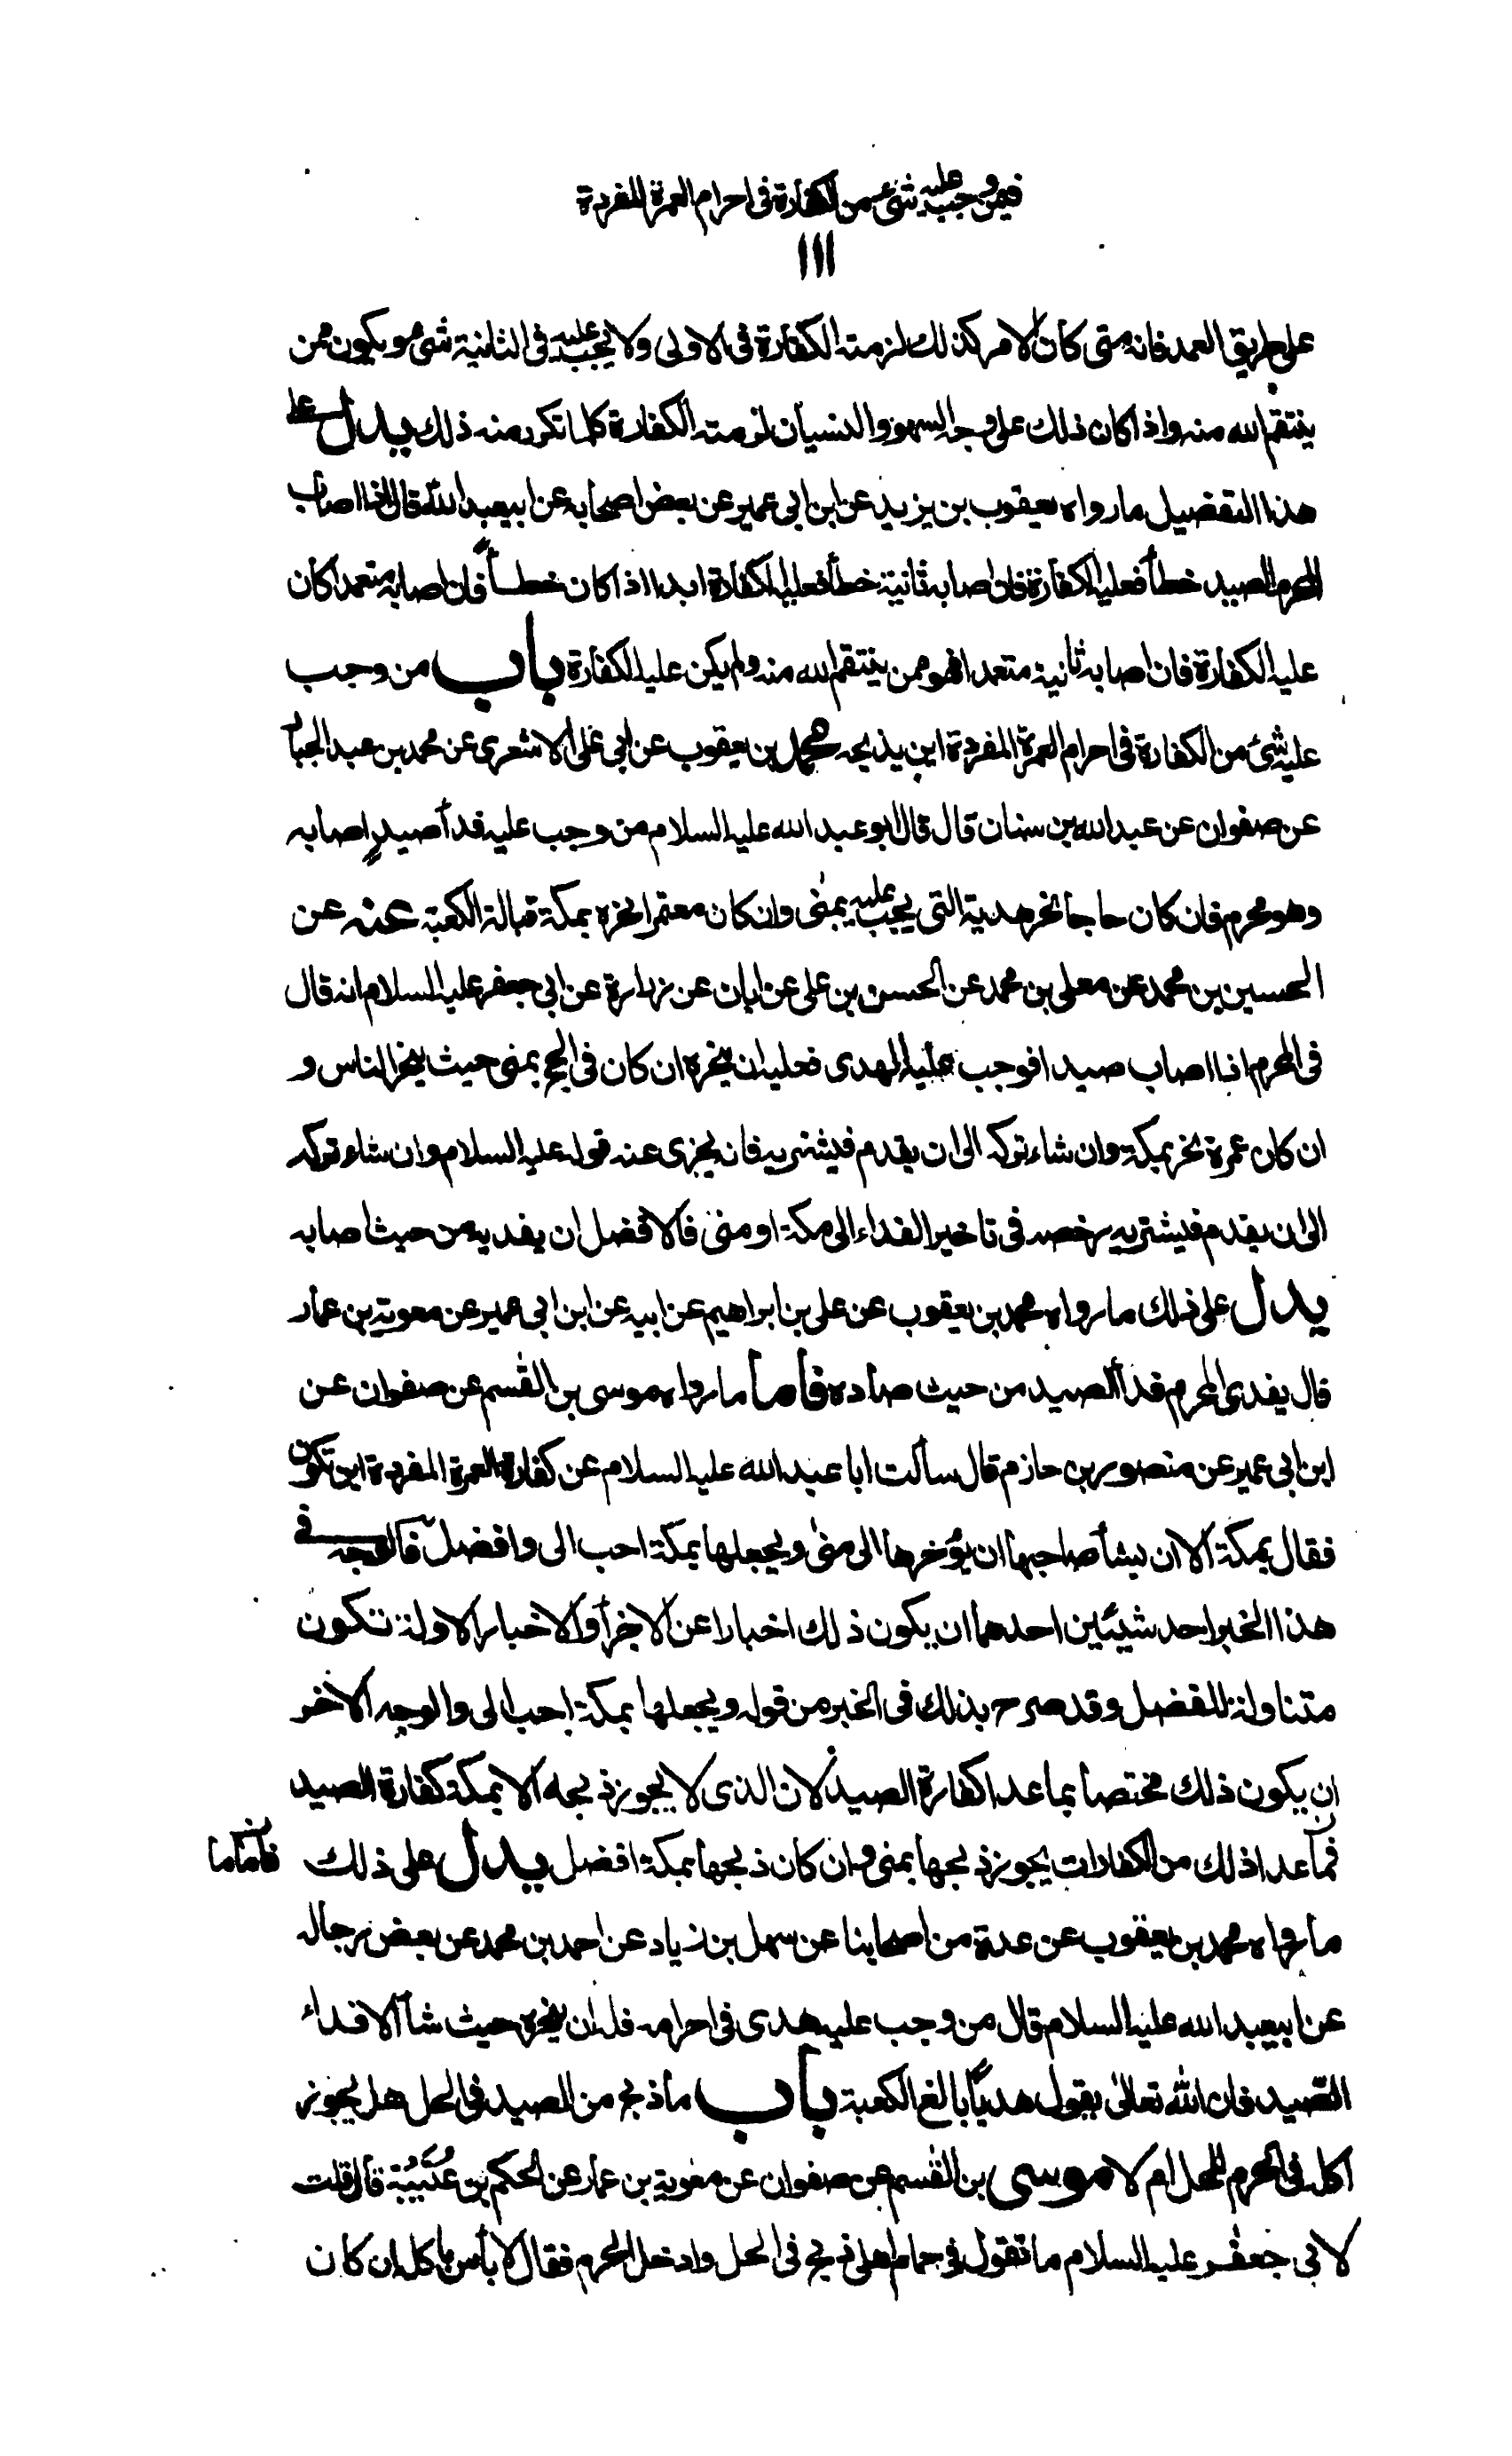 فيمن وجب عليه شئ من الكفارة فى احرام العمرة المفردة
١١١
على طريق العمد فانه متى كان الامر كذلك لزمته الكفارة فى الاولى ولا يجب عليه فى الثانية شئ ويكون ممن
ينتقم الله منه واذا كان ذلك على وجه السهو والنسيان لزمته الكفارة كلما تكرر منه ذلك يدل على
هذا التفصيل ما رواه يعقوب بن يزيد عن ابن ابى عمير عن بعض اصحابه عن ابيعبد الله قال اذا اصاب
المحرم الصيد خطأ فعليه الكفارة فان اصابه ثانية خطأ فعليه الكفارة ابدا اذا كان خطأ فان اصابه متعمدا كان
عليه الكفارة فان اصابه ثانية متعمدا فهو ممن ينتقم الله منه ولم يكن عليه الكفارة باب من وجب
عليه شئ من الكفارة فى احرام العمرة المفردة اين يذبحه محمد بن يعقوب عن ابى على الاشعرى عن محمد بن عبد الجبار
عن صفوان عن عبد الله بن سنان قال قال ابو عبد الله عليه السلام من وجب عليه فدأ صيد اصابه
وهو محرم فان كان حاجا نحر هديه التى يجب عليه بمنى وان كان معتمرا نحره بمكة قبالة الكعبة عنه عن
الحسين بن محمد عن معلى بن محمد عن الحسن بن على عن ابان عن زرارة عن ابى جعفر عليه السلام انه قال
فى المحرم اذا اصاب صيدا فوجب عليه الهدى فعليه ان ينحره ان كان فى الحج بمنى حيث ينحر الناس و
ان كان عمرة نحر بمكة وان شاء تركه الى ان يقدم فيشتريه فانه يجزى عنه قوله عليه السلام وان شاء تركه
الى ان يقدم فيشتريه رخصه فى تاخير الفداء الى مكة او منى فالافضل ان يفديه من حيث اصابه
يدل على ذلك ما رواه محمد بن يعقوب عن على بن ابراهيم عن ابيه عن ابن ابى عمير عن معوية بن عمار
قال يفدى المحرم فدأ الصيد من حيث صاده فاما ما رواه موسى بن القسم عن صفوان عن
ابن ابى عمير عن منصور بن حازم قال سألت ابا عبد الله عليه السلام عن كفارة العمرة المفردة اين تكون
فقال بمكة الا ان يشأ صاحبها ان يؤخرها الى منى ويجعلها بمكة احب الى وافضل فالوجه فى
هذا الخبر احد شيئين احدهما ان يكون ذلك اخبارا عن الاجزأ والاخبار الاولة تكون
متناولة للفضل وقد صرح بذلك فى الخبر من قوله ويجعلها بمكة احب الى والوجه الاخر
ان يكون ذلك مختصا بما عدا كفارة الصيد لان الذى لا يجوز ذبحه الا بمكة كفارة الصيد
فما عدا ذلك من الكفارات يجوز ذبحها بمنى وان كان ذبحها بمكة افضل يدل على ذلك
فاما ما
ما رواه محمد بن يعقوب عن عدة من اصحابنا عن سهل بن زياد عن احمد بن محمد عن بعض رجاله
عن ابيعبد الله عليه السلام قال من وجب عليه هدى فى احرامه فله ان ينحره حيث شأ الا فداء
الصّيد فان الله تعالى يقول هديًا بالغ الكعبة باب ما ذبح من الصيد فى الحل هل يجوز
اكله فى الحرم للمحل ام لا موسى بن القسم عن صفوان عن معوية بن عمار عن الحكم بن عُتَيبَة قال قلت
لابى جعفر عليه السلام ما تقول فى حمام اهلى ذبح فى الحل وادخل الحرم فقال لا بأس باكله ان كان